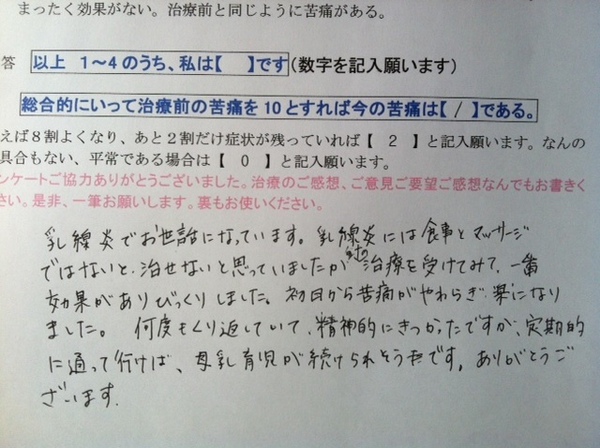 まったく効果がない。治療前と同じように苦痛がある。
答 以上 1～4のうち、私は【　】です（数字を記入願います）
総合的にいって治療前の苦痛を10とすれば今の苦痛は【 / 】である。
えば８割よくなり、あと２割だけ症状が残っていれば【 2 】と記入願います。なんの
具合もない、平常である場合は【 0 】と記入願います。
ンケートご協力ありがとうございました。治療のご感想、ご意見ご要望ご感想なんでもお書きく
さい。是非、一筆お願いします。裏もお使いください。
乳腺炎でお世話になっています。乳腺炎には食事とマッサージ
ではないと、治せないと思っていましたが 治療を受けてみて、一番
効果がありびっくりしました。初日から苦痛がやわらぎ楽になり
ました。 何度もくり返していて、精神的にきつかったですが、定期的
に通って行けば、母乳育児が続けられそうです。ありがとうご
ざいます。